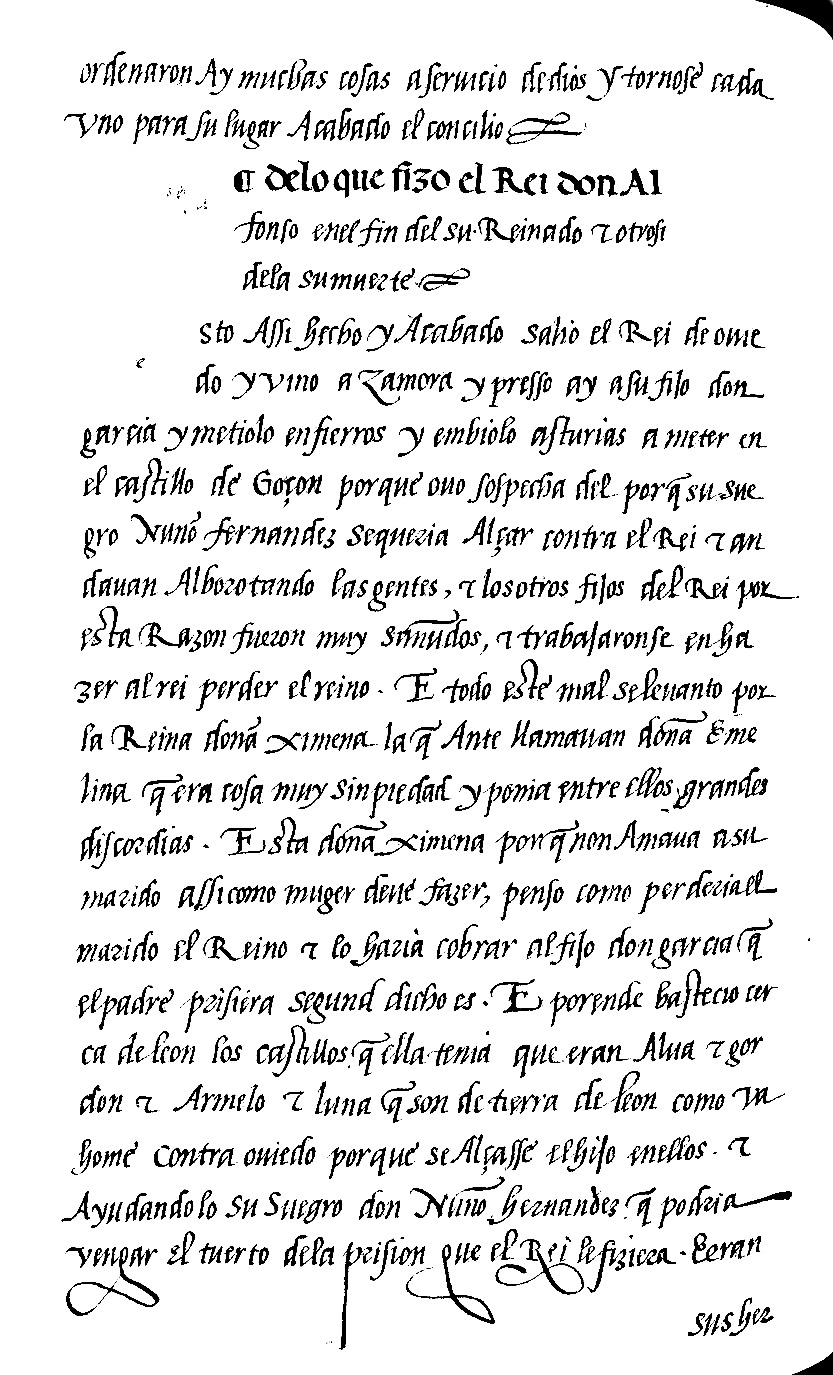 ordenaron Ay muchas cosas a seruicio de dios y tornose cada
vno para su lugar Acabado el concilio
¶ de lo que fizo el Rei don Al
fonso en el fin del su Reinado ⁊ otrosi
de la su muerte
sto Assi hecho y Acabado salio el Rei de ouie
e
do y vino a Zamora y presso ay a su fijo don
garcia y metiolo en fierros y embiolo asturias a meter en
el castillo de Goçon porque ouo sospecha del porq̃ su sue
gro Nuño fernandez se queria Alçar contra el Rei ⁊ an
dauan Alborotando las gentes, ⁊ los otros fijos del Rei por
esta Razon fueron muy sañudos, ⁊ trabajaronse en ha
zer al rei perder el reino. E todo este mal se leuanto por
la Reina doña ximena la q̃ Ante llamauan doña Eme
lina q̃ era cosa muy sin piedad y ponia entre ellos grandes
discordias. Esta doña ximena porq̃ non Amaua a su
marido assi como muger deue fazer, penso como perderia el
marido el Reino ⁊ lo haria cobrar al fijo don garcia q̃
el padre prisiera segund dicho es. E porende bastecio cer
ca de leon los castillos q̃ ella tenia que eran Alua ⁊ gor
don ⁊ Armelo ⁊ luna q̃ son de tierra de leon como va
home contra ouiedo porque se Alçasse el hijo en ellos. ⁊
Ayudandolo su suegro don Nuño hernandez q̃ podria
vengar el tuerto de la prision que el Rei le fiziera. E eran
sus her